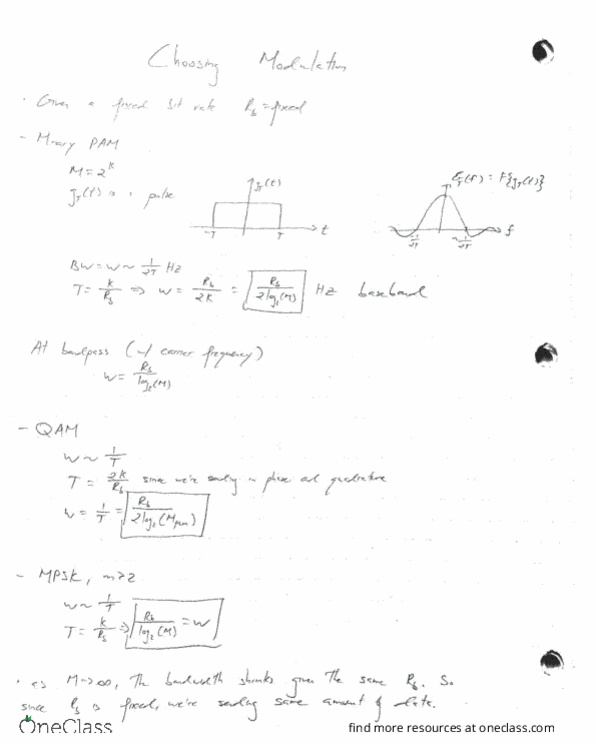 Choosing Modulation
· Given a fixed bit rate R_b = fixed
- M-ary PAM
M = 2^k
g_T(t) is a pulse
g_T(t)
-T T t
G_T(f) = F{g_T(t)}
-1/2T 1/2T f
BW = W ~ 1/2T Hz
T = k/R_b => W = R_b/2k = R_b/2log_2(M) Hz baseband
At bandpass (w/ carrier frequency)
W = R_b/log_2(M)
- QAM
W ~ 1/T
T = 2k/R_b since we're sending in phase and quadrature
W = 1/T = R_b/2log_2(M_PAM)
- MPSK, m>2
W ~ 1/T
T = k/R_b => R_b/log_2(M) = W
· as M->∞, The bandwidth shrinks given the same R_b. So
since R_b is fixed, we're sending same amount of data.
OneClass
find more resources at oneclass.com